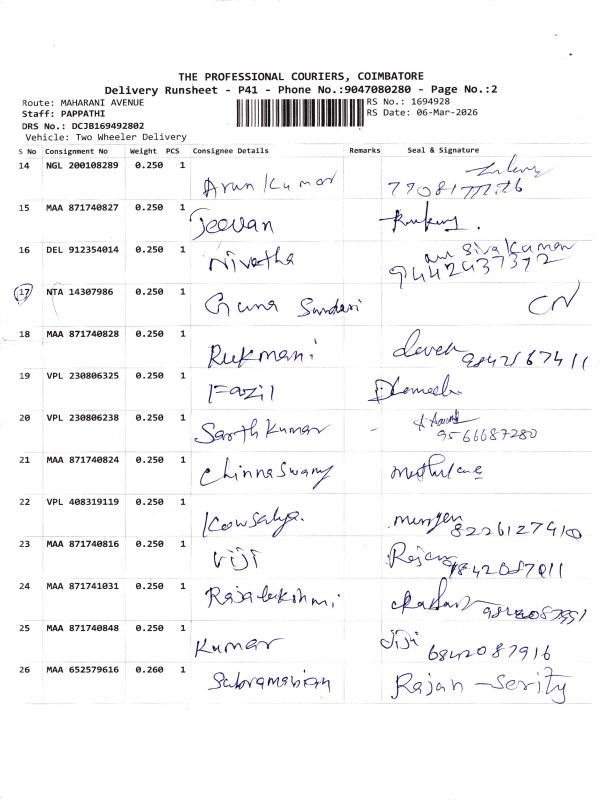 THE PROFESSIONAL COURIERS, COIMBATORE
Delivery Runsheet - P41 - Phone No.:9047080280 - Page No.:2
Route: MAHARANI AVENUE RS No.: 1694928
Staff: PAPPATHI RS Date: 06-Mar-2026
DRS No.: DCJB169492802
Vehicle: Two Wheeler Delivery
S No Consignment No Weight PCS Consignee Details Remarks Seal & Signature
14 NGL 200108289 0.250 1 Arun Kumar
15 MAA 871740827 0.250 1 Jeevan
16 DEL 912354014 0.250 1 Nivetha Siva Kumar
9442437372
17 NTA 14307986 0.250 1 Guna Sundari CN
18 MAA 871740828 0.250 1 Rukmani 9842567411
19 VPL 230806325 0.250 1 Fazil
20 VPL 230806238 0.250 1 Sarth Kumar
9566687280
21 MAA 871740824 0.250 1 Chinna Swamy
22 VPL 408319119 0.250 1 Kowsalya.
23 MAA 871740816 0.250 1 Viji
24 MAA 871741031 0.250 1 Rajalekshmi
25 MAA 871740848 0.250 1 Kumar Jiji 6842087916
26 MAA 652579616 0.260 1 Subramanian Rajan - Serity